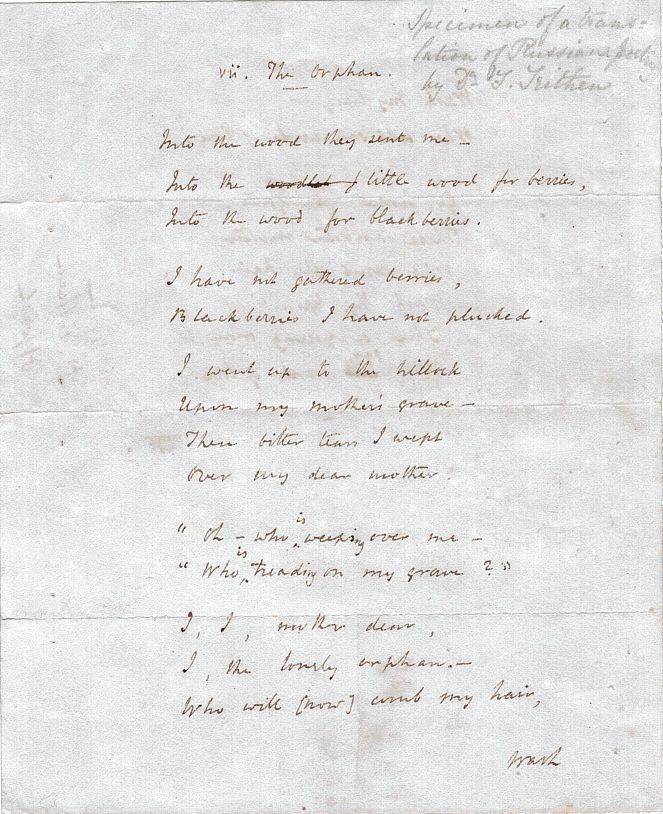 Specimen of a trans-
lation of Russian poetry
by Dr. F. Trithen
vii. The Orphan.
Into the wood they sent me –
Into the woodlet / little wood for berries,
Into the wood for blackberries.
I have not gathered berries,
Blackberries I have not plucked.
I went up to the hillock
Upon my mother's grave –
Then bitter tears I wept
Over my dear mother.
" Oh – who is weeping over me –
" Who is treading on my grave ? "
I, I, mother dear,
I, the lonely orphan. –
Who will [now] comb my hair,
Wash